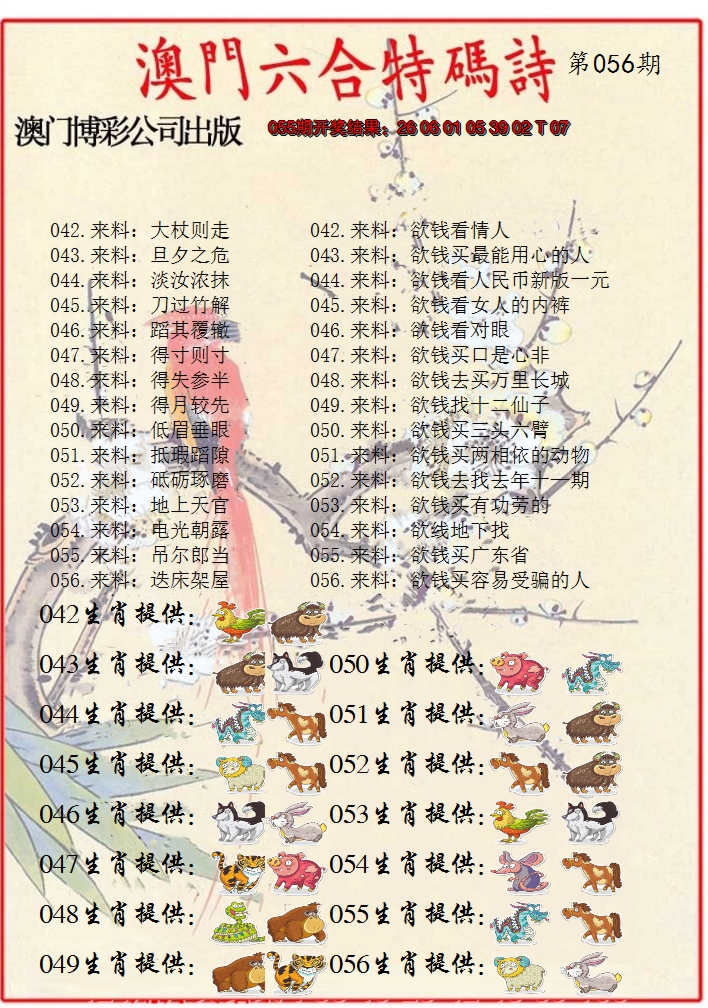 澳門六合特碼詩 第056期
澳门博彩公司出版 055期开奖结果：26 06 01 05 39 02 T 07
042.来料：大杖则走 042.来料：欲钱看情人
043.来料：旦夕之危 043.来料：欲钱买最能用心的人
044.来料：淡汝浓抹 044.来料：欲钱看人民币新版一元
045.来料：刀过竹解 045.来料：欲钱看女人的内裤
046.来料：蹈其覆辙 046.来料：欲钱看对眼
047.来料：得寸则寸 047.来料：欲钱买口是心非
048.来料：得失参半 048.来料：欲钱去买万里长城
049.来料：得月较先 049.来料：欲钱找十二仙子
050.来料：低眉垂眼 050.来料：欲钱买三头六臂
051.来料：抵瑕蹈隙 051.来料：欲钱买两相依的动物
052.来料：砥砺琢磨 052.来料：欲钱去找去年十一期
053.来料：地上天官 053.来料：欲钱买有功劳的
054.来料：电光朝露 054.来料：欲线地下找
055.来料：吊尔郎当 055.来料：欲钱买广东省
056.来料：迭床架屋 056.来料：欲钱买容易受骗的人
042生肖提供：
043生肖提供： 050生肖提供：
044生肖提供： 051生肖提供：
045生肖提供： 052生肖提供：
046生肖提供： 053生肖提供：
047生肖提供： 054生肖提供：
048生肖提供： 055生肖提供：
049生肖提供： 056生肖提供：